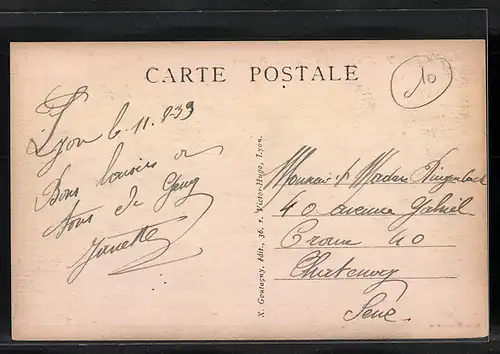 CARTE POSTALE
10
Lyon le 11.8-39
Bons baisers
tous de
X. Goutagny, édit., 36, r. Victor-Hugo, Lyon.
Monsieur et Madame
40 avenue Gabriel
40
Chatenay
Seine.